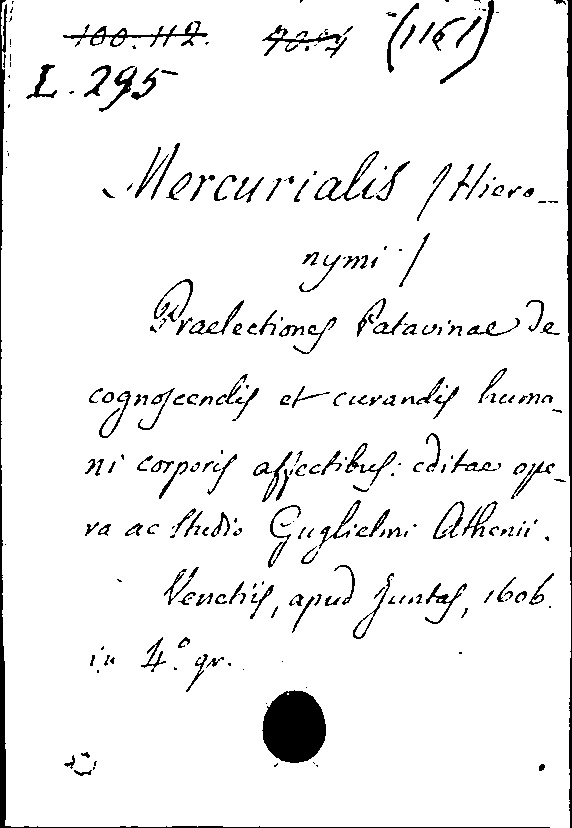 100.112. 70.14 (1151)
L. 295
Mercurialis / Hiero-
nymi /
Praelectiones Patavinae de
cognoscendis et curandis huma-
ni corporis affectibus: editae ope-
ra ac studio Guglielmi Athenii.
Venetiis, apud Juntas, 1606.
in 4.° gr.